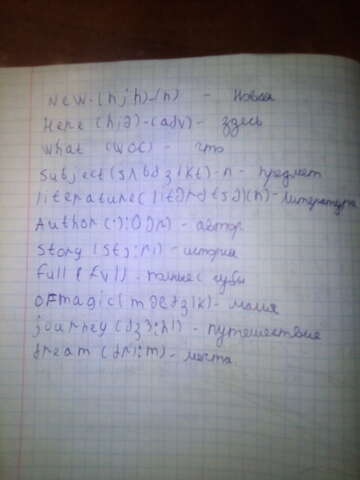 New-(hjh)-(n) - Новая
Here (hiə)-(adv) - здесь
what (woc) - что
Subject(sʌbdʒikt)-n - предмет
literature(litərətʃə)(n)-литература
Author - автор
Story (stɔ:ri) - история
full (ful) - полные губы
OFmagic(mæædʒik) - магия
journey(dʒɜ:ni) - путешествие
dream (dri:m) - мечта